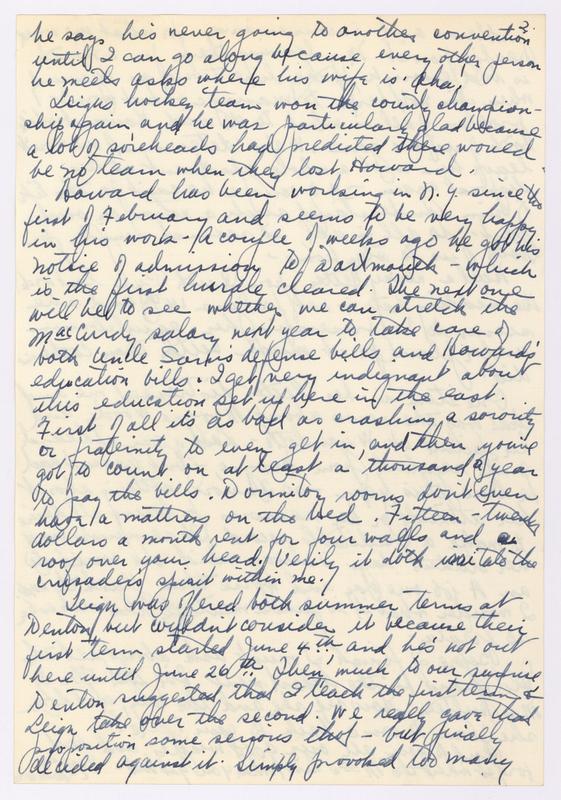 2.
he says he's never going to another convention
until I can go along because every other person
he meets asks where his wife is. Aha.
Leighs hockey team won the county champion-
ship again, and he was particularly glad because
a lot of soreheads had predicted there would
be no team when they lost Howard.
Howard has been working in N.Y. since the
first of February and seems to be very happy
in his work - A couple of weeks ago he got his
notice of admission to Dartmouth - which
is the first hurdle cleared. The next one
will be to see whether we can stretch the
MacCurdy salary next year to take care of
both Uncle Sam's defense bills and Howard's
education bills. I get very indignant about
this education set up here in the east.
First of all it's as bad as crashing a sorority
or fraternity to even get in, and then you've
got to count on at least a thousand a year
to pay the bills. Dormitory rooms don't even
have a mattress on the bed. Fifteen - twenty
dollars a month rent for four walls and a
roof over your head. Verily it doth irritate the
crusaders spirit within me!
Leigh was offered both summer terms at
Denton but wouldn't consider it because their
first term started June 4th and he's not out
here until June 26th. Then, much to our surprise
Denton suggested that I teach the first term &
Leigh take over the second. We really gave that
proposition some serious thot - but finally
decided against it. Simply provoked too many